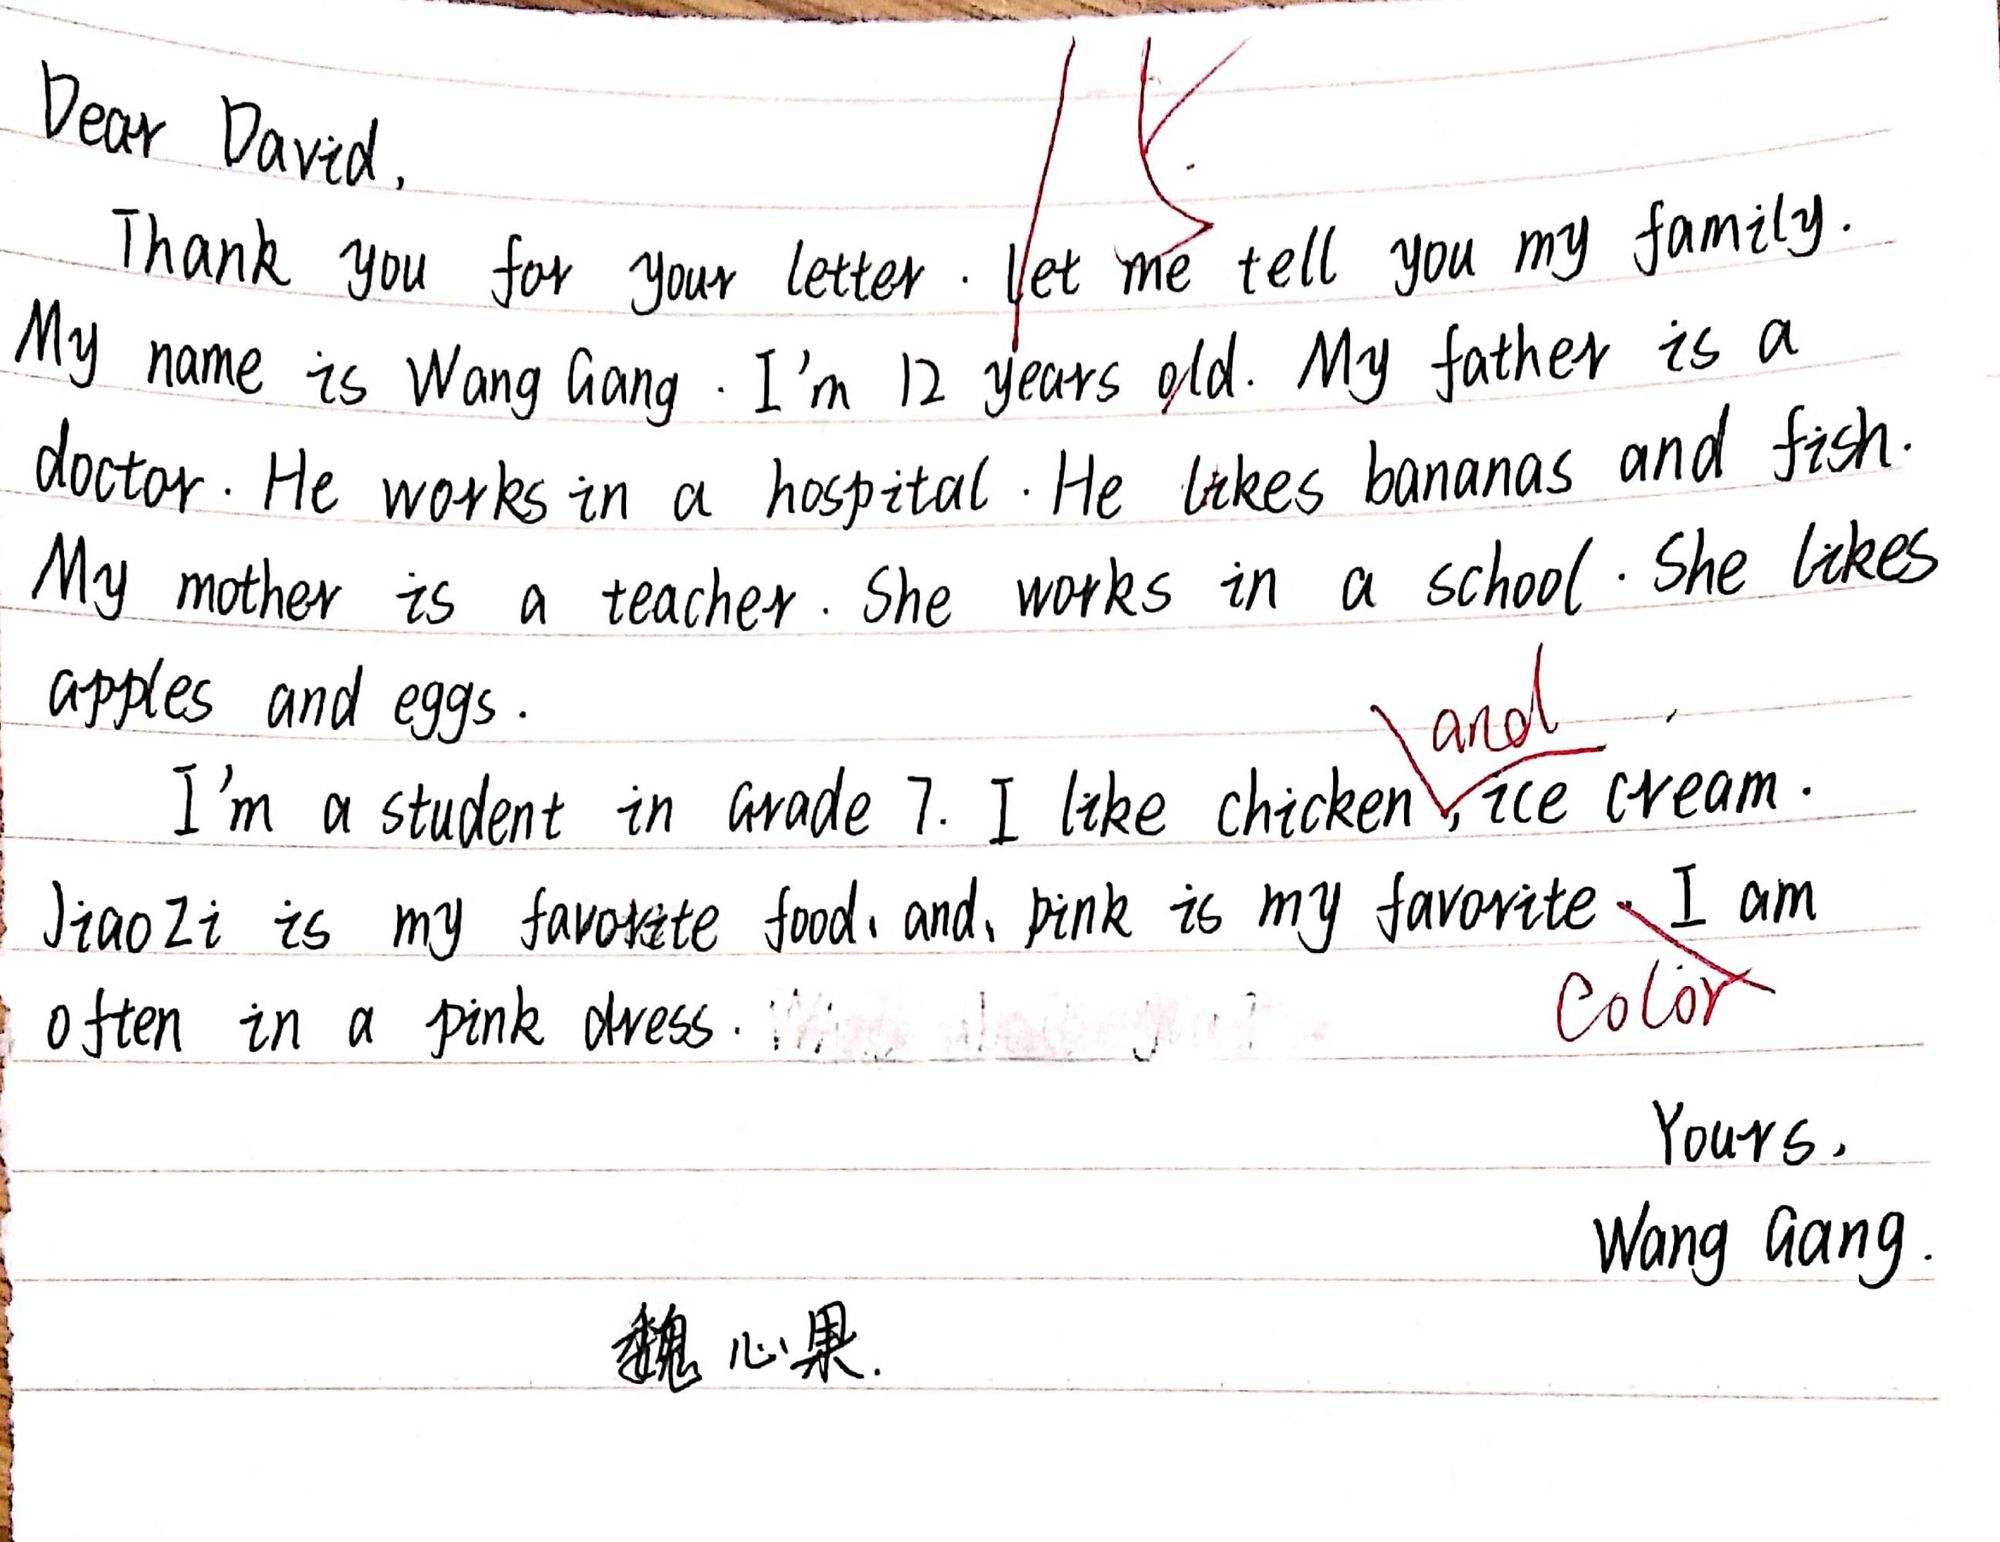 Dear David,
Thank you for your letter. Let me tell you my family.
My name is Wang Gang. I'm 12 years old. My father is a
doctor. He works in a hospital. He likes bananas and fish.
My mother is a teacher. She works in a school. She likes
apples and eggs.
and
I'm a student in Grade 7. I like chicken, ice cream.
JiaoZi is my favorite food, and, pink is my favorite. I am
Color
often in a pink dress.
Yours,
Wang Gang.
魏心果.